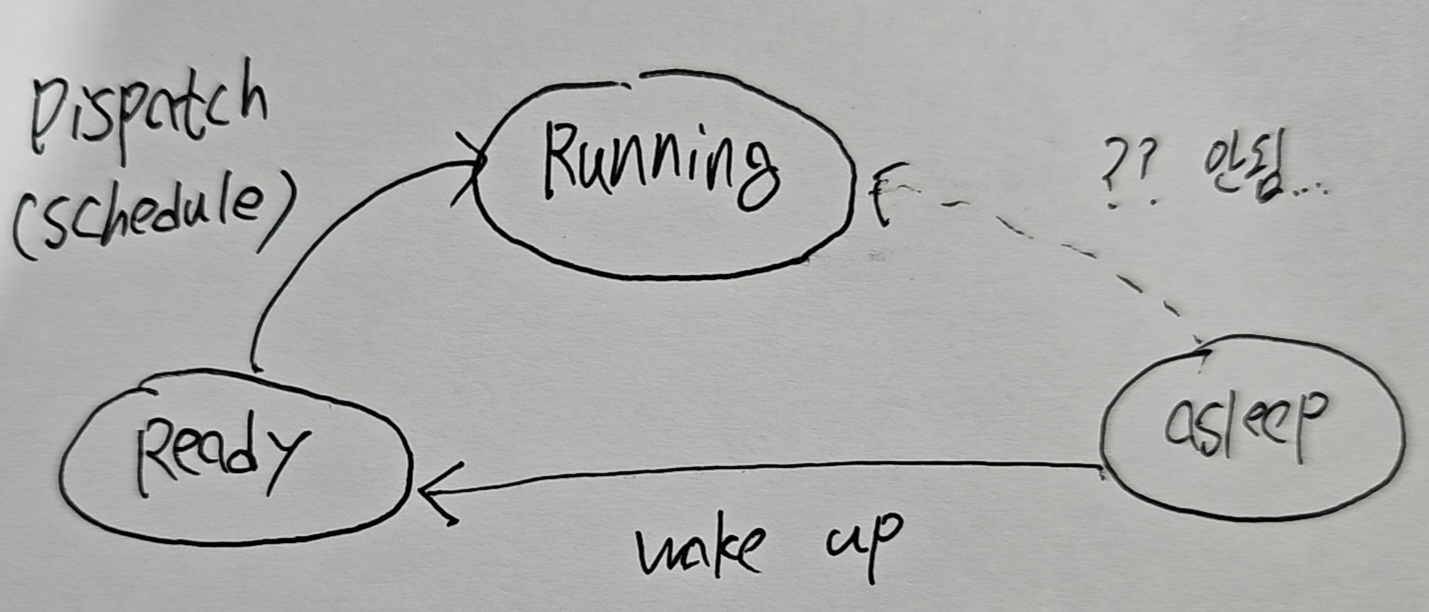 Dispatch
(schedule)
Running
?? 안됨...
Ready
asleep
wake up